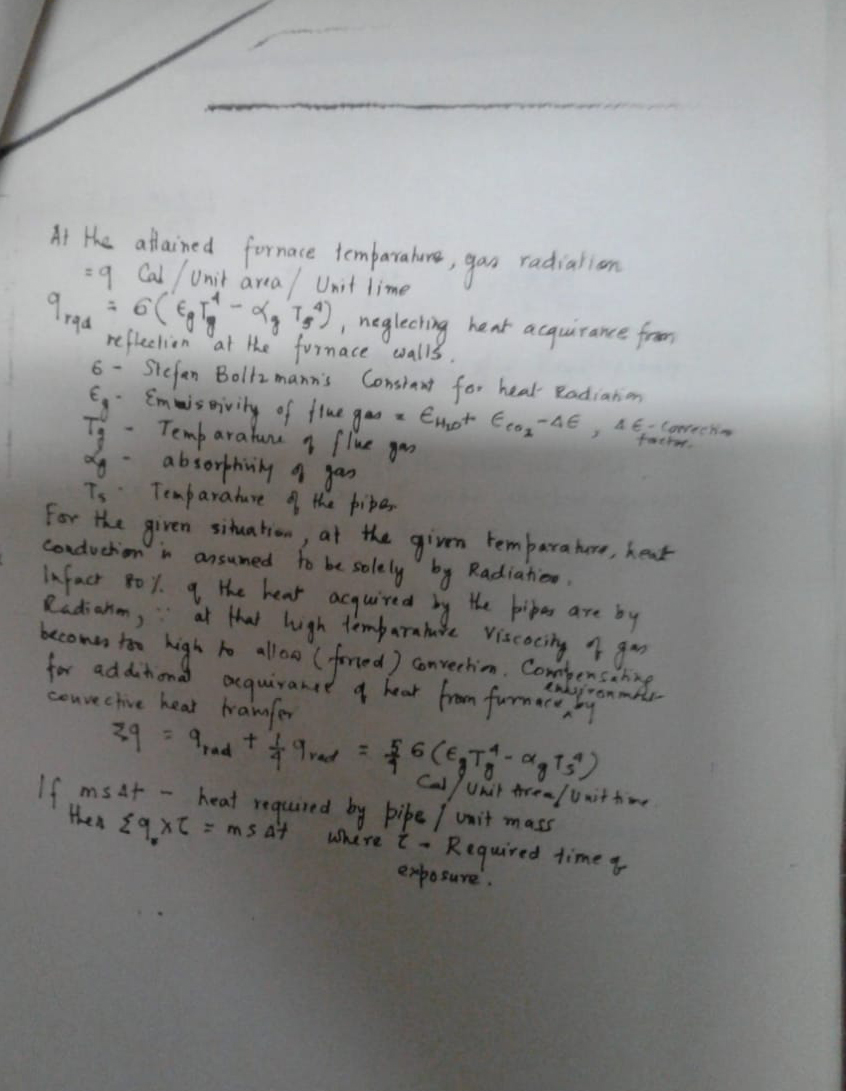 At the attained furnace temparature, gas radiation
= q Cal / Unit area / Unit time
q rad = σ(ϵg Tg⁴ - αg Ts⁴), neglecting heat acquirance from
reflection at the furnace walls.
σ - Stefan Boltzmann's Constant for heat Radiation
ϵg - Emmissivity of flue gas = ϵH₂O + ϵCO₂ - Δϵ, Δϵ - Correction
factor.
Tg - Temparature of flue gas
αg - absorptivity of gas
Ts - Temparature of the pipes
For the given situation, at the given temparature, heat
conduction is assumed to be solely by Radiation.
Infact 80% of the heat acquired by the pipes are by
Radiation, ∵ at that high temparature Viscocity of gas
becomes too high to allow (forced) convection. Compensating
for additional acquirance of heat from furnace environment by
convective heat transfer
Σq = q rad + 1/4 q rad = 5/4 σ(ϵg Tg⁴ - αg Ts⁴)
Cal / Unit Area / Unit time
If msΔt - heat required by pipe / unit mass
then Σq × τ = msΔt where τ - Required time of
exposure.